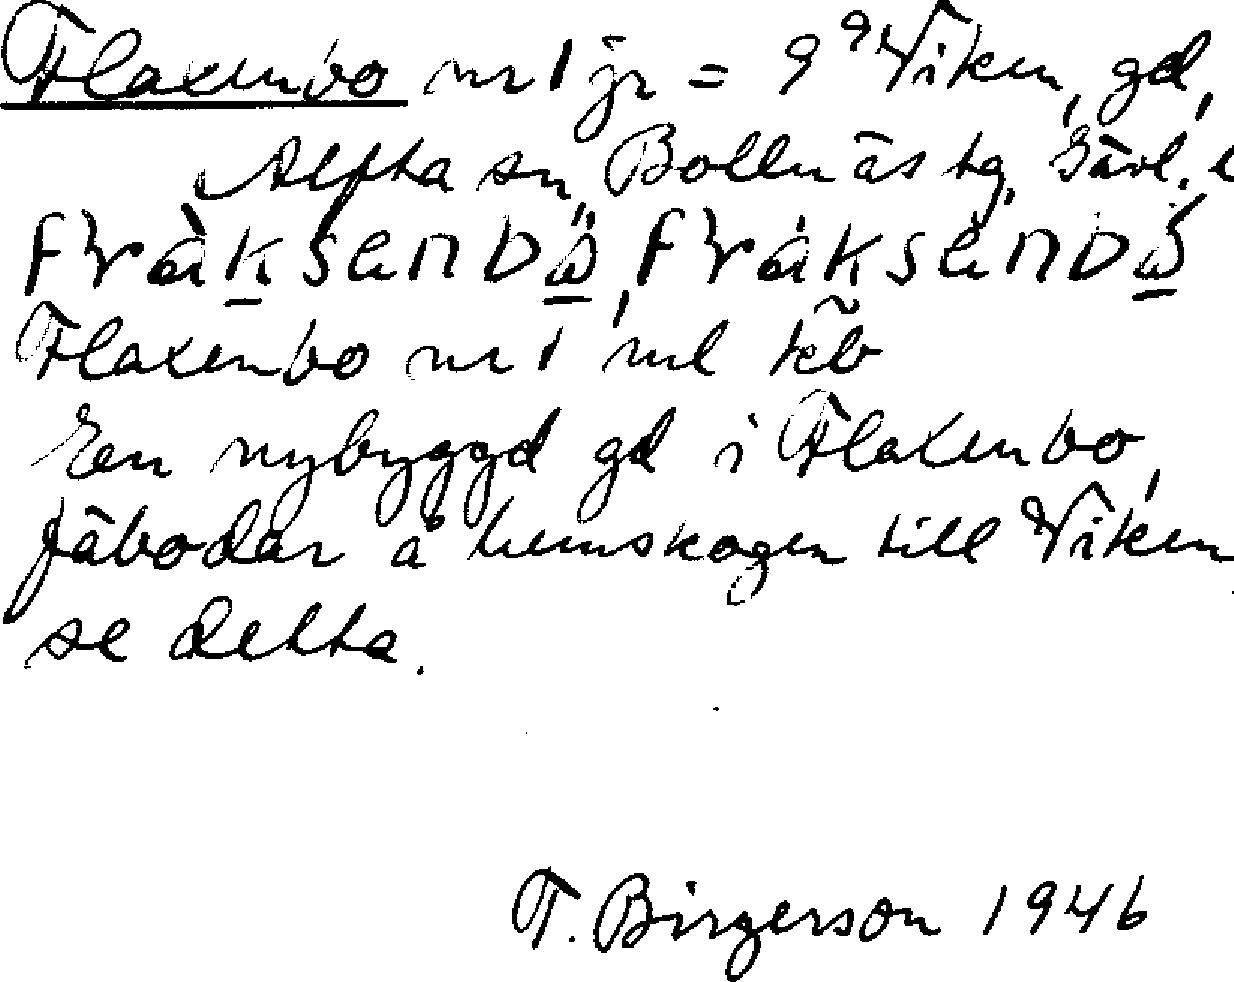 Flaxenbo nr 1 jr = 9⁹ Viken, gd,
Alfta sn, Bollnäs tg, Gävl. l
Flaxenbo nr 1 ml kb
En nybyggd gd i Flaxenbo,
fäbodar å hemskogen till Viken
se detta.
T. Birgerson 1946